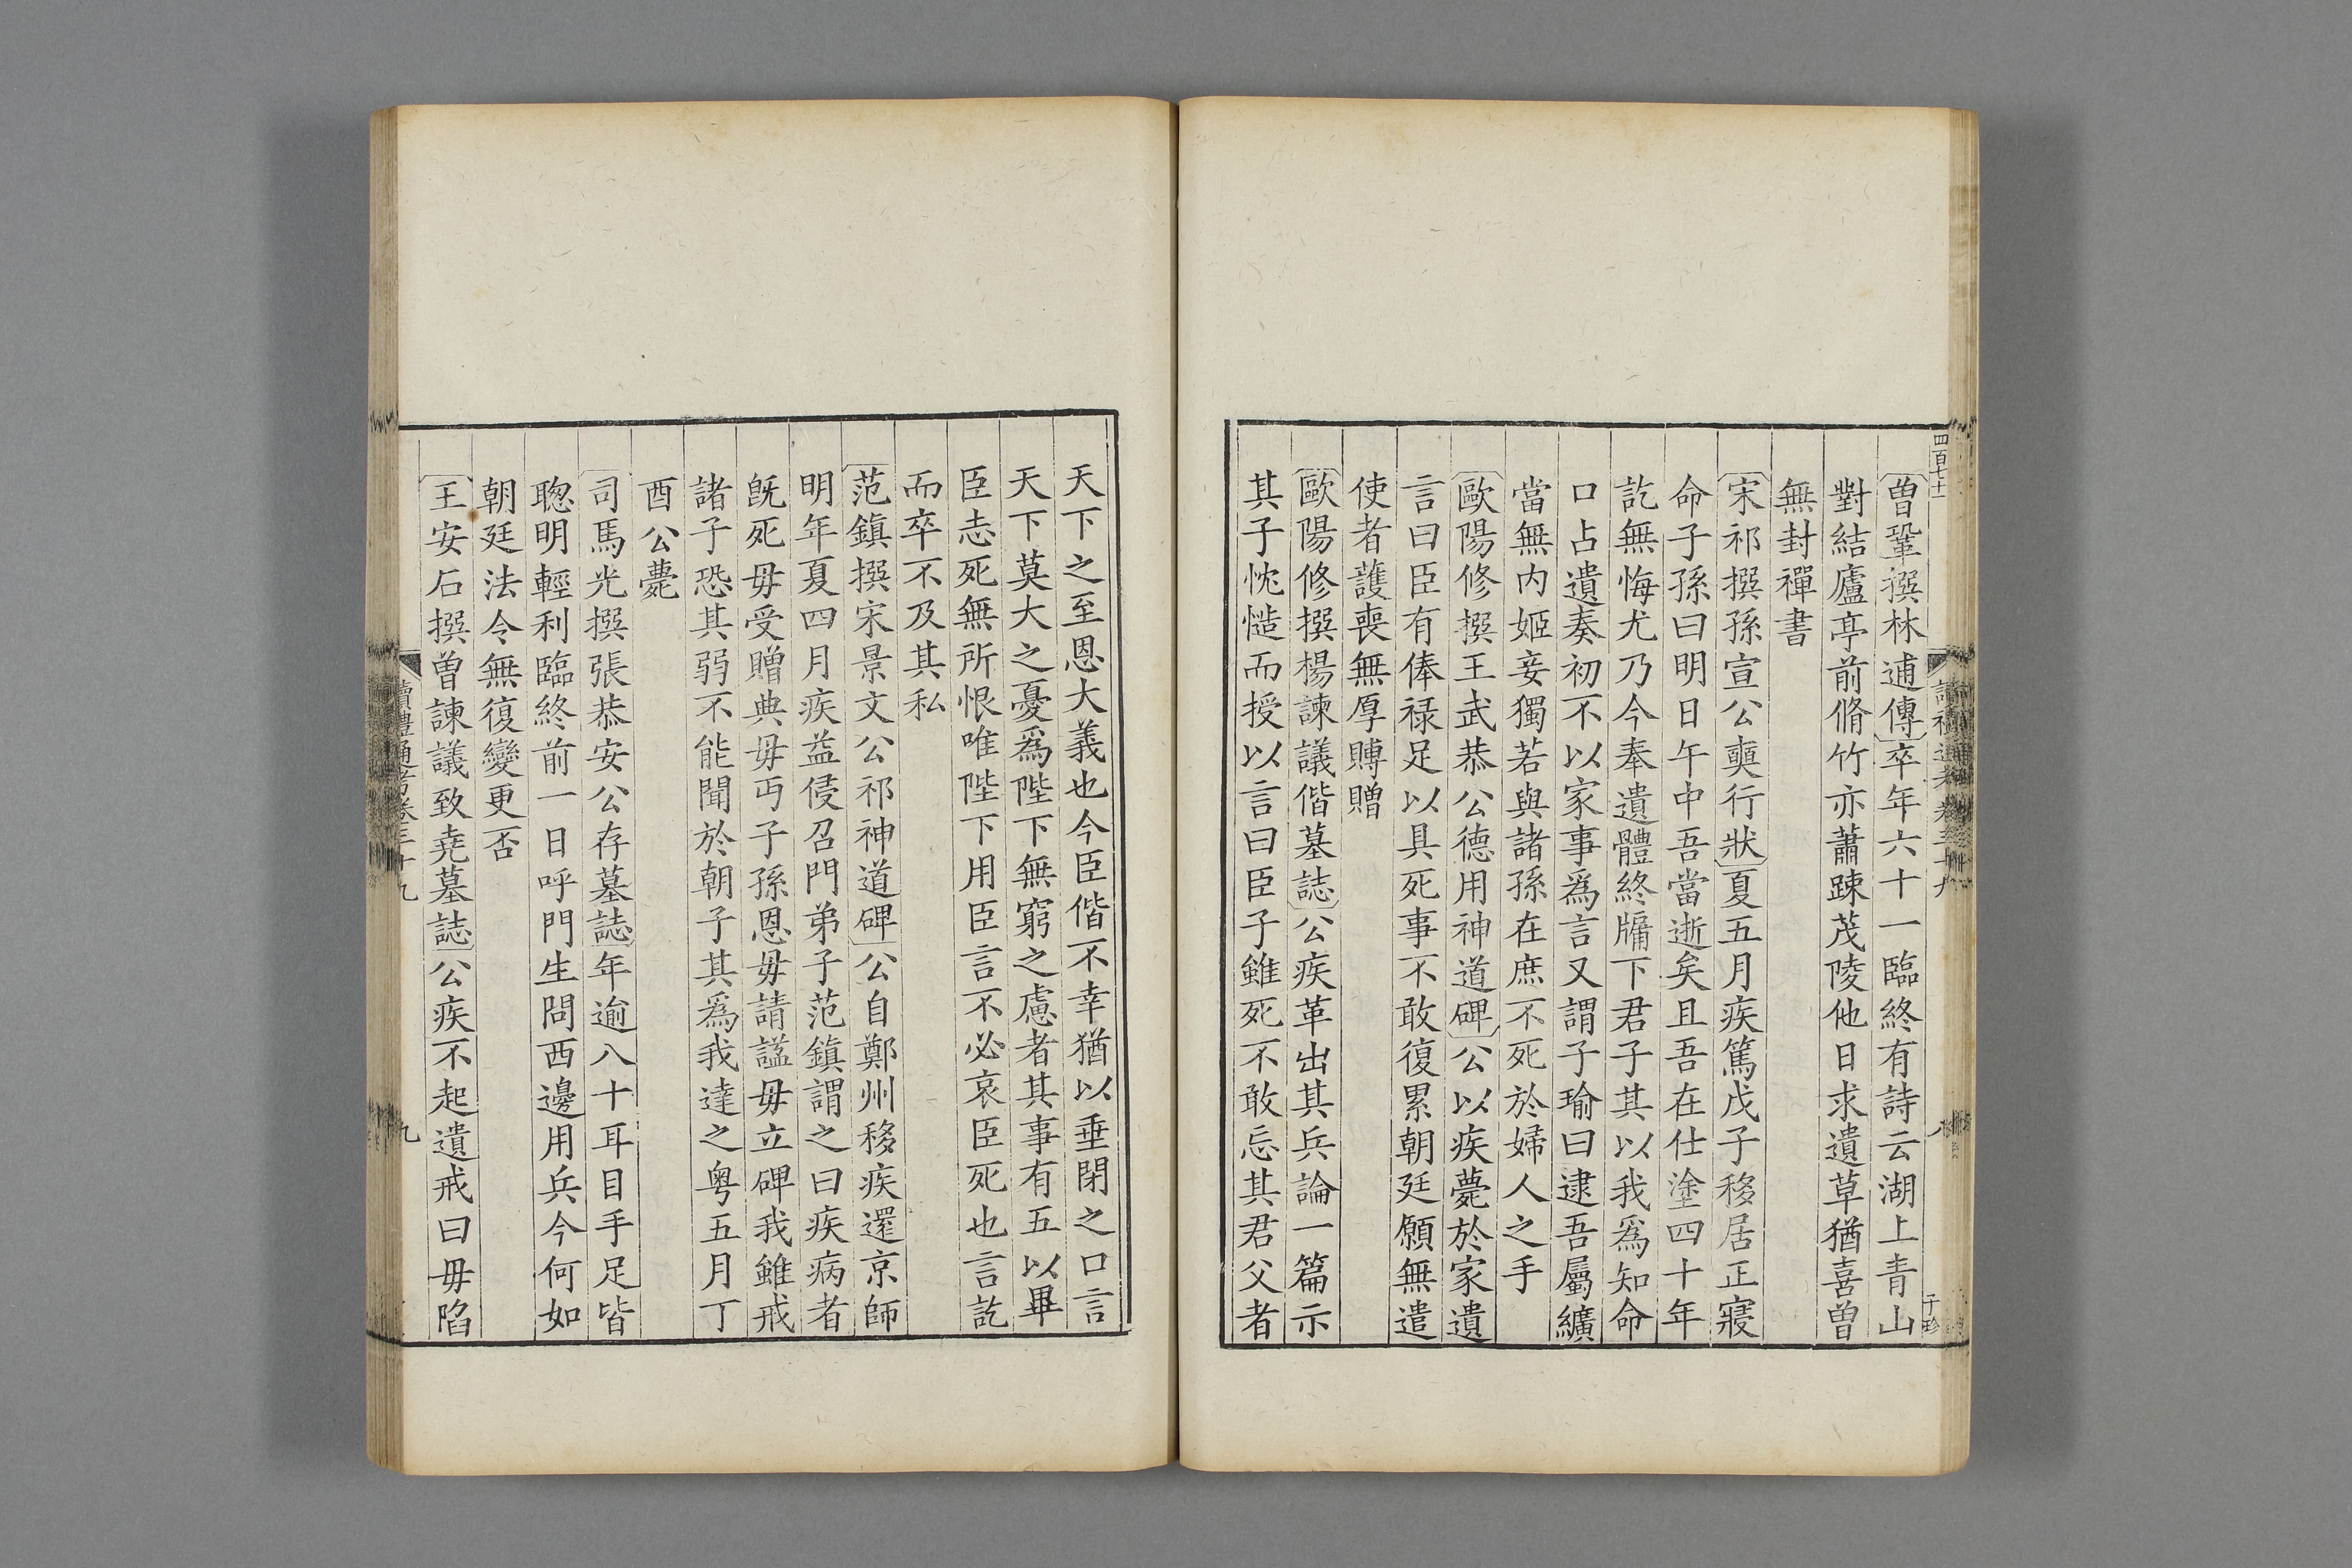 曾鞏撰林逋傳卒年六十一臨終有詩云湖上青山
對結廬亭前脩竹亦蕭踈茂陵他日求遺草猶喜曾
無封禪書
宋祁撰孫宣公奭行狀夏五月疾篤戊子移居正寢
命子孫曰明日午中吾當逝矣且吾在仕塗四十年
訖無悔尤乃今奉遺體終牖下君子其以我爲知命
口占遺奏初不以家事爲言又謂子瑜曰逮吾屬纊
當無內姬妾獨若與諸孫在庶不死於婦人之手
歐陽修撰王武恭公德用神道碑公以疾薨於家遺
言曰臣有俸祿足以具死事不敢復累朝廷願無遣
使者護喪無厚賻贈
歐陽修撰楊諫議偕墓誌公疾革出其兵論一篇示
其子忱慥而授以言曰臣子雖死不敢忘其君父者
天下之至恩大義也今臣偕不幸猶以垂閉之口言
天下莫大之憂爲陛下無窮之慮者其事有五以畢
臣志死無所恨唯陛下用臣言不必哀臣死也言訖
而卒不及其私
范鎮撰宋景文公祁神道碑公自鄭州移疾還京師
明年夏四月疾益侵召門弟子范鎮謂之曰疾病者
旣死毋受贈典毋丐子孫恩毋請諡毋立碑我雖戒
諸子恐其弱不能聞於朝子其爲我達之粤五月丁
酉公薨
司馬光撰張恭安公存墓誌年逾八十耳目手足皆
聰明輕利臨終前一日呼門生問西邊用兵今何如
朝廷法令無復變更否
王安石撰曾諫議致堯墓誌公疾不起遺戒曰毋陷
讀禮通考卷三十九
九